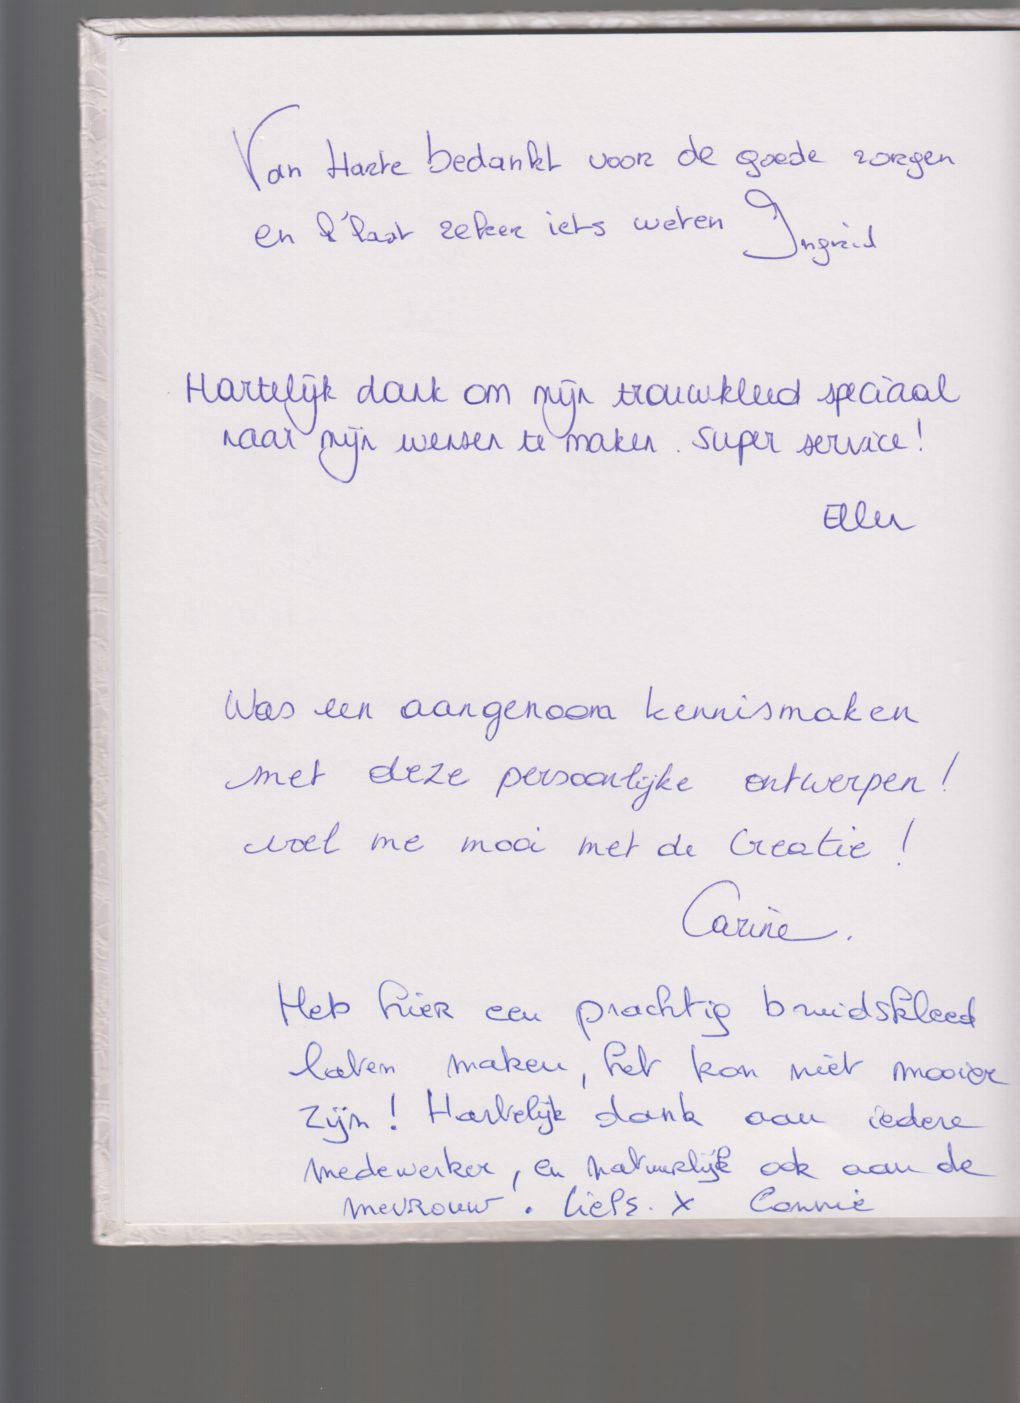 Van Harte bedankt voor de goede zorgen
en k'laat zeker iets weten Ingrid
Hartelijk dank om mijn trouwkleed speciaal
naar mijn wensen te maken. Super service!
Ellen
Was een aangenaam kennismaken
met deze persoonlijke ontwerpen!
voel me mooi met de Creatie!
Carine.
Heb hier een prachtig bruidskleed
laten maken, het kon niet mooier
zijn! Hartelijk dank aan iedere
medewerker, en natuurlijk ook aan de
mevrouw. Liefs. X Connie